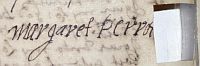 margaret Perro